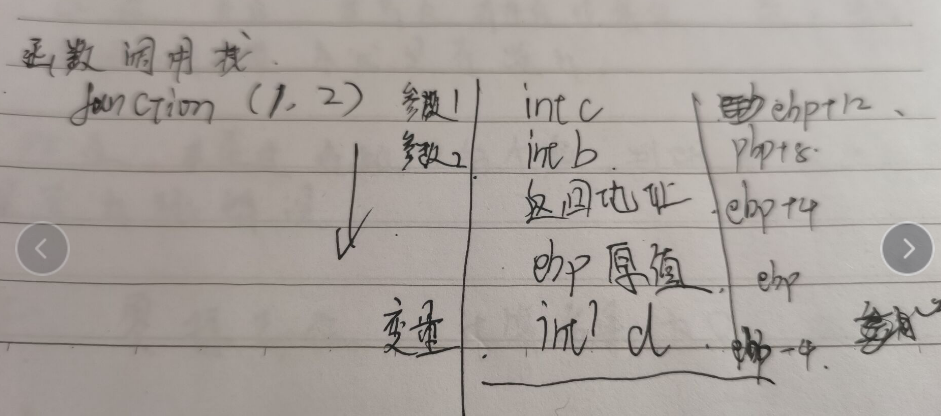 函数调用栈.
function (1, 2) 参数1 int c ebp+12、
参数2 int b. ebp+8.
返回地址. ebp+4
ebp 原值. ebp
变量. int d. ebp-4.